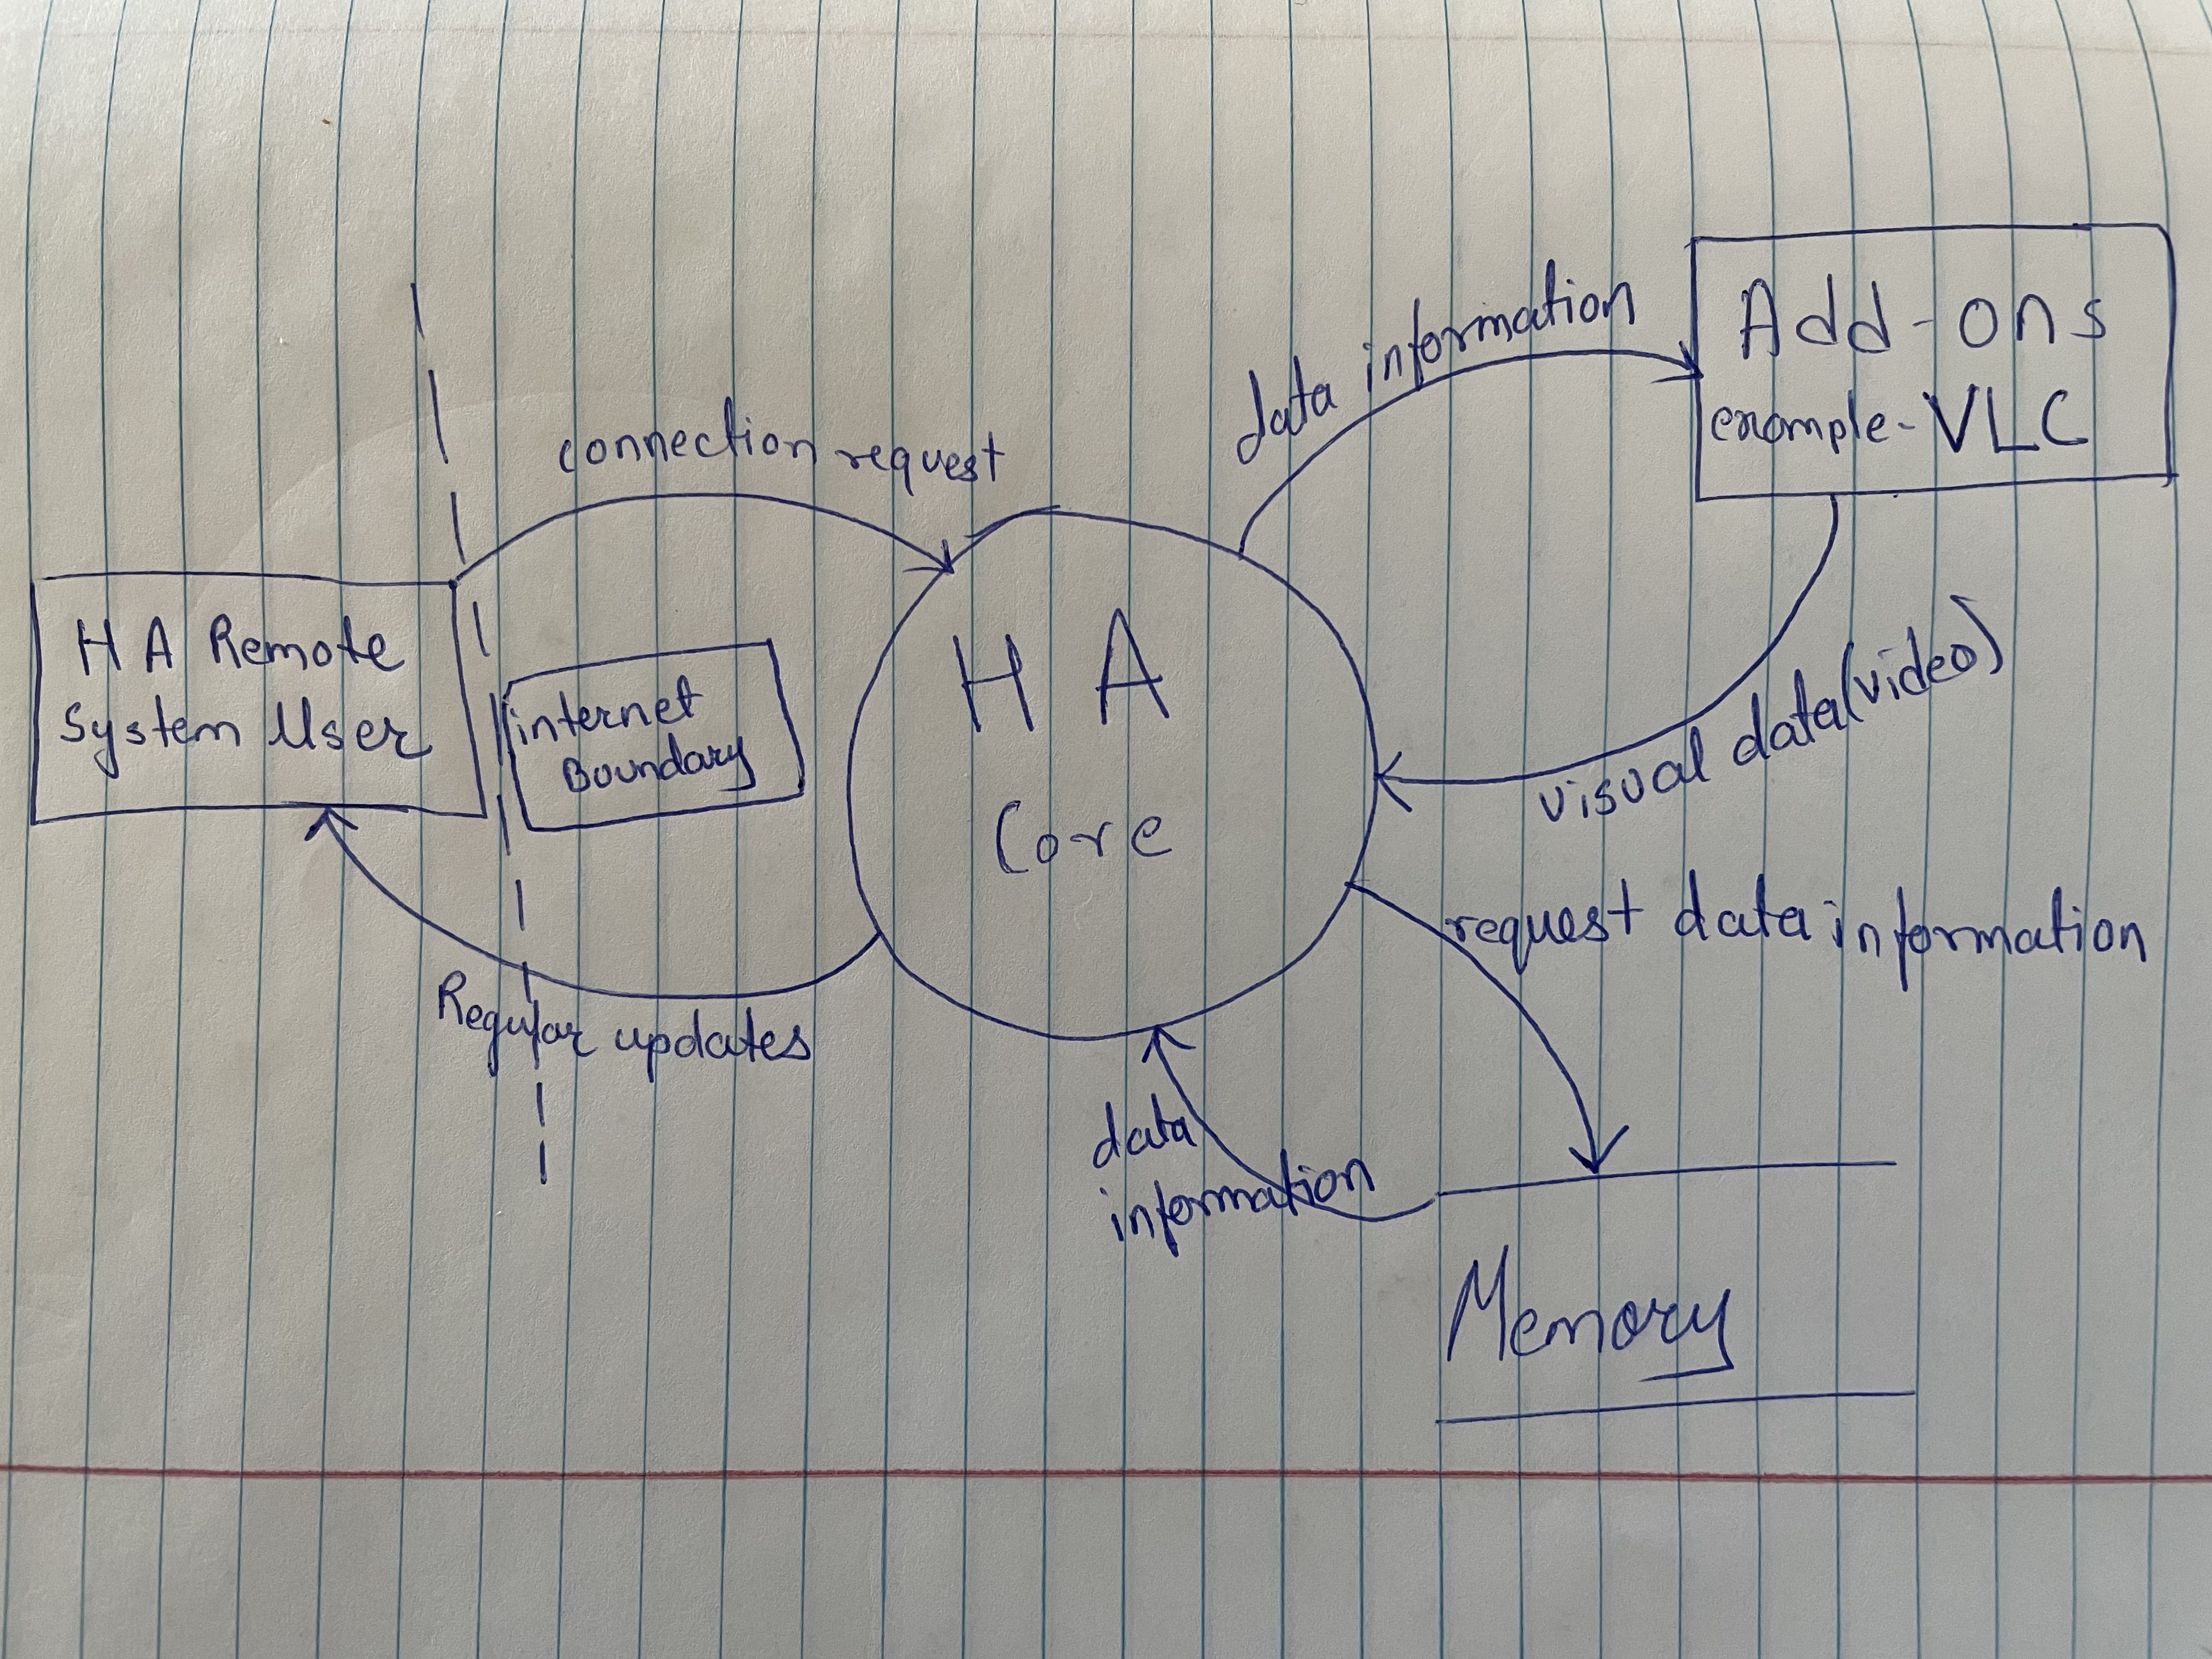 H A Remote
System User
connection request
internet
Boundary
Regular updates
H A
Core
data information
Add-ons
example-VLC
visual data(video)
request data information
data
information
Memory